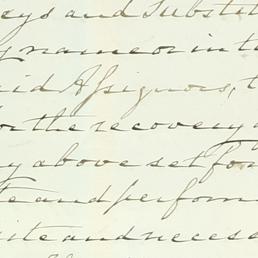 eys and Substit
y name or in te
aid Assignors, t
or the recovery o
y above set for
te and perform
site and necess